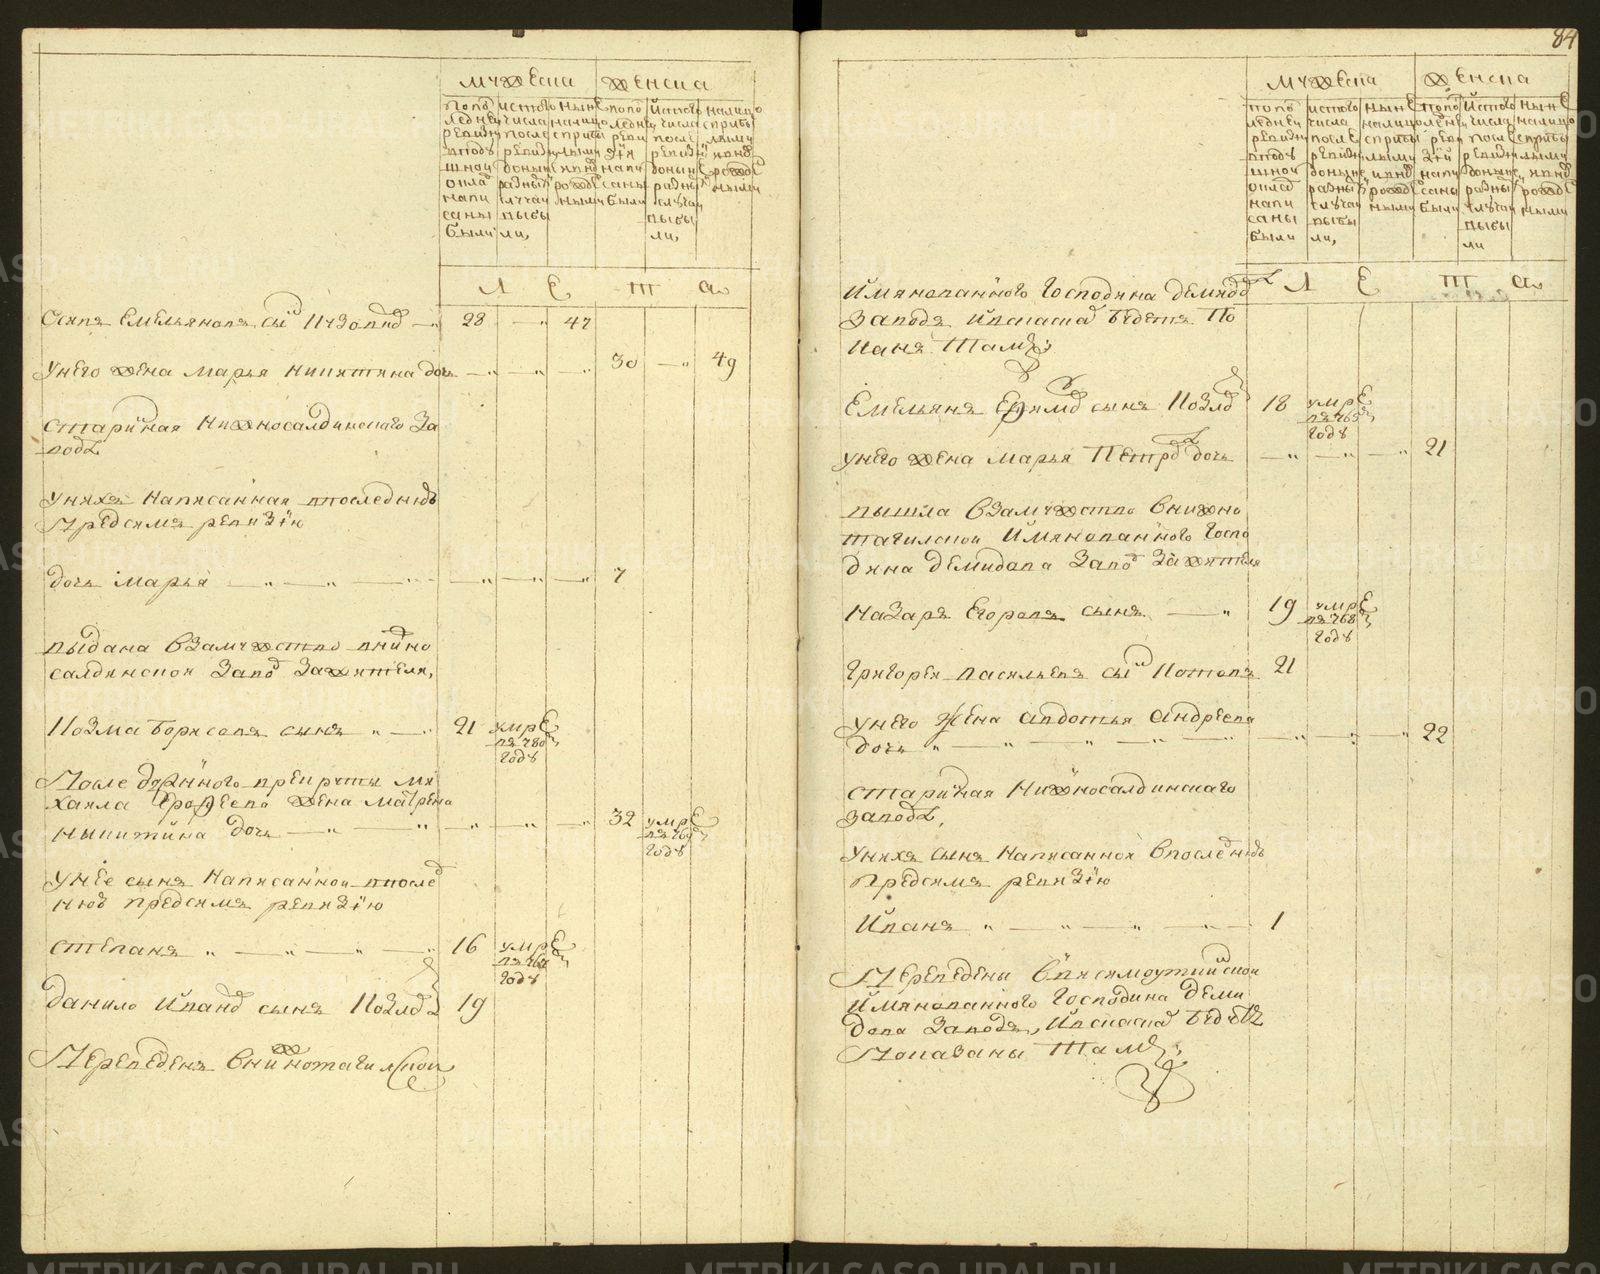 84
мужеска
женска
попо
следней
ревизи
вподу
шной
оклад
напи
саны
были
изтого
числа
после
ревизи
доныне
разных
случаи
выбы
ли,
ныне
налицо
сприбы
лыми
ивнов
рожде
ными
попо
следней
реви
зiи
напи
саны
были
изтого
числа
после
ревизи
доныне
разных
случаи
выбы
ли,
налицо
сприбы
лыми
ивнов
рожде
ными
Л Е Т А
Осипъ Емельяновъ сын Кузовнв 28 47
Унего жена марья никитина дочь 30 49
старинная Нижносалдинскаго За
вода
Унихъ написанная впоследнюю
Предсимъ ревизiю
дочь марья 7
выдана взамужство внижно
салдинской завод зажителя,
Козма борисовъ сынъ 21 умре
въ 780 м
году
После доринного рекруты ми
хаила Ерофеева жена матрена
никитина дочь 32 умре
въ 769 м
году
Унее сынъ написанной впослед
нюю предсимъ ревизiю
степанъ 16 умре
въ 767 м
году
данило Иванов сынъ Козлов 19
Переведенъ внижнотагилской
мужеска
женска
попо
следней
ревизи
вподу
шной
оклад
напи
саны
были
изтого
числа
после
ревизи
доныне
разных
случаи
выбы
ли,
ныне
налицо
сприбы
лыми
ивнов
рожде
ными
попо
следней
реви
зiй
напи
саны
были
изтого
числа
после
ревизи
доныне
разных
случаи
выбы
ли
ныне
налицо
сприбы
лыми
ивнов
рожде
ными
Л Е Т А
имянованного Господина демидова
Заводъ ивсказкъ будетъ По
канъ Тамъ;
Емельянъ Ефимов сынъ Козлов 18 умре
въ 765 м
году
унего жена марья Петрова дочь 21
вышла взамужство внижно
тагилской имянованного Госпо
дина демидова завод зажителя
Назаръ Егоровъ сынъ 19 умре
въ 768 м
году
Григорей васильевъ сын Котовъ 21
унего жена авдотья андреева
дочь 22
старинная Нижносалдинскаго
завода,
Унихъ сынъ написанной впоследнюю
предсимъ ревизiю
Иванъ 1
Переведены ввисимоуткинской
имянованного Господина деми
дова Заводъ, ивсказкъ будутъ
Показаны Тамъ;